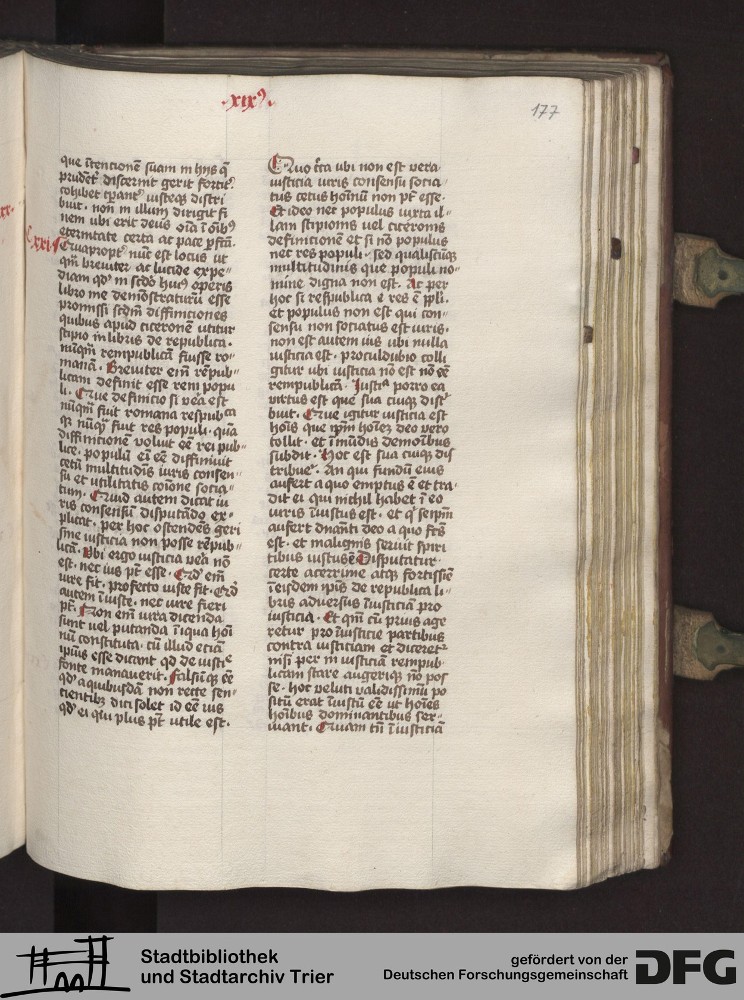 .xixꝰ.
177
que ītentionē suam in hijs q̄
prudēt͛ discernit gerit fortit͛
cohibet tꝑant͛ iusteqꝫ distri
buit. non in illum dirigit fi
nem ubi erit deus oīa ī oībꝫ
eternitate certa ac pace ꝑfcā.
xxi Quapropt͛ nūc est locus ut
qm̄ breuiter ac lucide expe
diam qd̓ in scd̓o huiꝰ operis
libro me demōstraturū esse
promissi scd̓m diffinitiones
quibus apud ciceronē utitur
scipio in libris de republica.
nūqm̄ rempublicā fuisse ro
manā. Breuiter em̄ rēpub
licam definit esse rem popu
li. Que definicio si uēa est
nūqm̄ fuit romana respubca
qꝛ nūqꝫ fuit res populi. quā
diffinitionē voluit eē rei pub
lice. populū ei eē diffiniuit
cetū multitudīs iuris consen
su et utilitatis cōione socia
tum. Quid autem dicat iu
ris consensū disputādo ex
plicat. per hoc ostendēs geri
sine iusticia non posse rēpub
licā. Ubi ergo iusticia uēa nō
est. nec ius pt̄ esse. Qd̓ em̄
iure fit. profecto iuste fit. Qd̓
autem īiuste. nec iure fieri
pt̄. Non em̄ iura dicenda
sunt uel putanda īiqua hoī
nū constituta. cū illud etiā
ipsi ius esse dicant qd̓ de iusticie
fonte manauerit. falsūqꝫ eē
qd̓ a quibusdā non recte sen
tientibꝫ dici solet id eē ius
qd̓ ei qui plus pt̄ utile est.
Quo circa ubi non est uera
iusticia iuris consensu socia
tus cetus hoīnū non pt̄ esse.
Et ideo nec populus iuxta il
lam scipionis uel ciceronis
definitionē et si nō populus
nec res populi. sed qualiscūqꝫ
multitudinis que populi no
mine digna non est. Ac per
hoc si respublica ē res ē ppli.
et populus non est qui con
sensu non sociatus est iuris.
non est autem ius ubi nulla
iusticia est. proculdubio colli
gitur ubi iusticia nō est nō eē
rempublicā. Iusticia porro ea
uirtus est que sua cuiqꝫ distͥ
buit. Que igitur iusticia est
hoīs que ip̄m hoīeꝫ deo uero
tollit. et īmūdis demonibus
subdit. Hoc est sua cuiqꝫ dis
tribuer͛. An qui fundū eius
aufert a quo emptus ē et tra
dit ei qui nichil habet ī eo
iuris īiustus est. et qͥ seip̄m
aufert dnāti deo a quo fctūs
est. et malignis seruit spiri
tibus iustus ē Disputatur
certe acerrime atqꝫ fortissiē
ī eisdem ip̄is de republica li
bris aduersus īiusticiā pro
iusticia. Et qm̄ cū prius age
retur pro īiusticie partibus
contra iusticiam et diceret͛
nisi per in iusticiā rempub
licam stare augeriqꝫ nō pos
se. hoc ueluti ualidissimū po
situ erat īiustū eē ut hoīes
hoībus dominantibus ser
uiant. Quam tn̄ īiusticiā
Stadtbibliothek
und Stadtarchiv Trier
gefördert von der
Deutschen Forschungsgemeinschaft
DFG